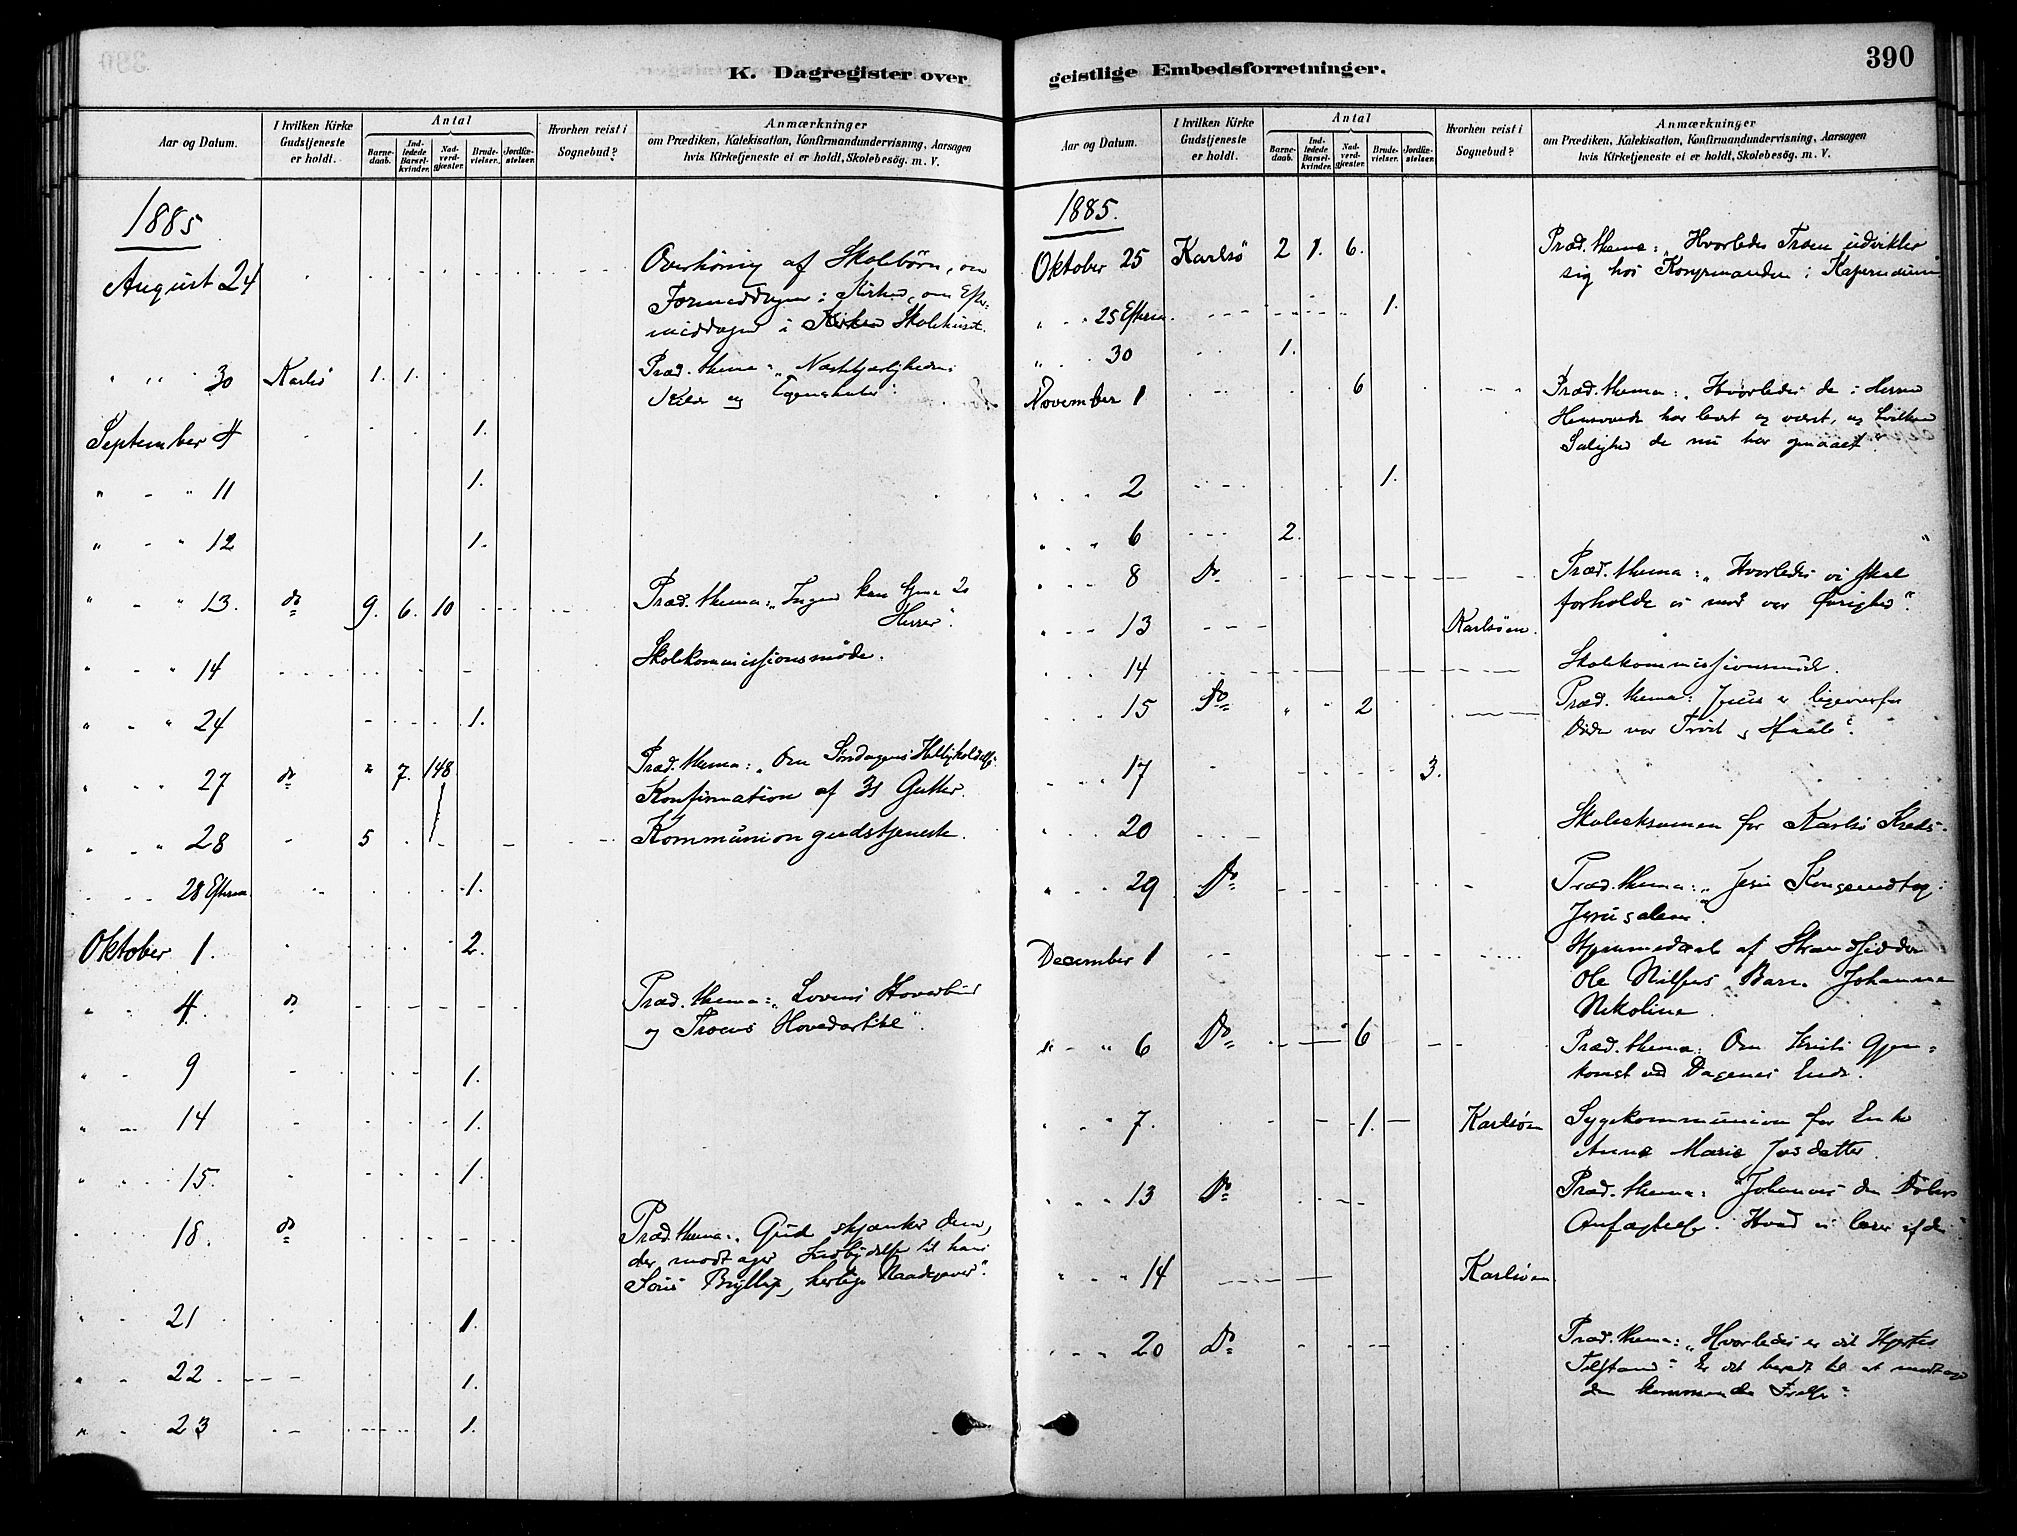 K. Dagregister over
geistlige Embedsforretninger.
390
Aar og Datum.
I hvilken Kirke Gudstjeneste er holdt.
Antal
Barnedaab.
Indledede Barselkvinder.
Nadverdgjæster.
Brudevielser.
Jordfæstelser.
Hvorhen reist i Sognebud?
Anmærkninger
om Prædiken, Katekisation, Konfirmandundervisning, Aarsagen
hvis Kirketjeneste ei er holdt, Skolebesög, m. V.
1885
August 24 Overhöring af Skolebörn, om
Formiddagen i Kirken, om Efter-
middagen i Skolehuset.
" " 30 Karlsö 1. 1. Præd. thema: "Næstkjærlighedens
Kilde og Egenskaber".
September 4 1.
" - " 11 1.
" - " 12 1.
" - " 13. do 9. 6. 10 Præd. thema: "Ingen kan tjene 2
Herrer".
" " 14 Skolekommissionsmöde.
" " 24 1.
" " 27 do " 7. 148 Præd. thema: "Om Söndagens Helligholdelse
Konfirmation af 31 Gutter.
" " 28 5 Kommuniongudstjeneste.
28 Efterm 1.
Oktober 1. 2.
" " 4. do Præd. thema: "Lovens Hovedbud
og Troens Hovedartikel".
" " 9 1.
" 14 1.
" 15. 1.
" 18. do Præd. thema: "Gud skjænker dem,
der modtager Indbydelse til hans
Söns Bryllup, herlige Naadegaver".
" 21 1.
" 22 1.
" 23 1.
Aar og Datum.
I hvilken Kirke Gudstjeneste er holdt.
Antal
Barnedaab.
Indledede Barselkvinder.
Nadverdgjæster.
Brudevielser.
Jordfæstelser.
Hvorhen reist i Sognebud?
Anmærkninger
om Prædiken, Katekisation, Konfirmandundervisning, Aarsagen
hvis Kirketjeneste ei er holdt, Skolebesög, m. V.
1885.
Oktober 25 Karlsö 2 1. 6. Præd. thema: "Hvorledes Troen udvikler
sig hos Kongsmanden i Kapernaum
" " 25 Efterm. 1.
" " 30 1.
November 1 6 Præd. thema: "Hvorledes de i Herren
Hensovede har levet og været, og hvilken
Salighed de nu har opnaaet".
" " 2 1.
" " 6 2.
" " 8 Do Præd. thema: "Hvorledes vi skal
forholde os mod vor Övrighed".
" " 13 Karlsöen.
" " 14 Skolekommissionsmöde.
" " 15 Do " " 2 Præd. thema: Jesus er ligeoverfor
Döden vor Tröst og Haab".
" " 17 3.
" " 20 Skoleeksamen for Karlsö Kreds.
" " 29 Do Præd. thema: "Jesu Kongeindtog i
Jerusalem".
December 1 Hjemmedaab af Strandsidder
Ole Nilsens Barn Johanna
Nikoline.
" " 6 Do 6 Præd. thema: Om Kristi Gjen-
komst ved Dagenes Ende.
" " 7. 1. Karlsöen Sygekommunion for Enke
Anne Marie Josdatter.
" " 13 Do Præd. thema: "Johannes den Döbers
Anfægtelse. Hvad vi lærer af den
" " 14 Karlsöen
" " 20 Do Præd. thema: "Hvorledes er dit Hjertes
Tilstand? Er det beredt til at modtage
den kommende Frelser?